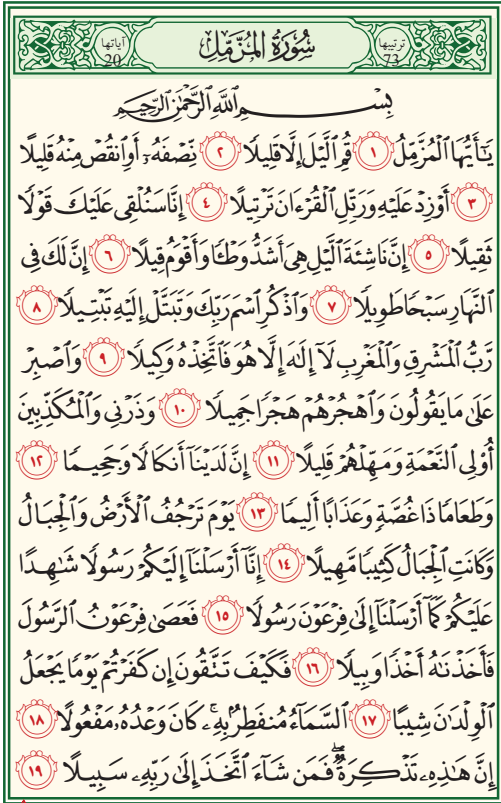 آياتها 20 سُورَةُ الْمُزَّمِّلِ ترتيبها 73
بِسْمِ ٱللَّهِ ٱلرَّحْمَٰنِ ٱلرَّحِيمِ
يَٰٓأَيُّهَا ٱلْمُزَّمِّلُ ١ قُمِ ٱلَّيْلَ إِلَّا قَلِيلًا ٢ نِّصْفَهُۥٓ أَوِ ٱنقُصْ مِنْهُ قَلِيلًا
٣ أَوْ زِدْ عَلَيْهِ وَرَتِّلِ ٱلْقُرْءَانَ تَرْتِيلًا ٤ إِنَّا سَنُلْقِى عَلَيْكَ قَوْلًا
ثَقِيلًا ٥ إِنَّ نَاشِئَةَ ٱلَّيْلِ هِىَ أَشَدُّ وَطْـًٔا وَأَقْوَمُ قِيلًا ٦ إِنَّ لَكَ فِى
ٱلنَّهَارِ سَبْحًا طَوِيلًا ٧ وَٱذْكُرِ ٱسْمَ رَبِّكَ وَتَبَتَّلْ إِلَيْهِ تَبْتِيلًا ٨
رَّبُّ ٱلْمَشْرِقِ وَٱلْمَغْرِبِ لَآ إِلَٰهَ إِلَّا هُوَ فَٱتَّخِذْهُ وَكِيلًا ٩ وَٱصْبِرْ
عَلَىٰ مَا يَقُولُونَ وَٱهْجُرْهُمْ هَجْرًا جَمِيلًا ١٠ وَذَرْنِى وَٱلْمُكَذِّبِينَ
أُو۟لِى ٱلنَّعْمَةِ وَمَهِّلْهُمْ قَلِيلًا ١١ إِنَّ لَدَيْنَآ أَنكَالًا وَجَحِيمًا ١٢
وَطَعَامًا ذَا غُصَّةٍ وَعَذَابًا أَلِيمًا ١٣ يَوْمَ تَرْجُفُ ٱلْأَرْضُ وَٱلْجِبَالُ
وَكَانَتِ ٱلْجِبَالُ كَثِيبًا مَّهِيلًا ١٤ إِنَّآ أَرْسَلْنَآ إِلَيْكُمْ رَسُولًا شَٰهِدًا
عَلَيْكُمْ كَمَآ أَرْسَلْنَآ إِلَىٰ فِرْعَوْنَ رَسُولًا ١٥ فَعَصَىٰ فِرْعَوْنُ ٱلرَّسُولَ
فَأَخَذْنَٰهُ أَخْذًا وَبِيلًا ١٦ فَكَيْفَ تَتَّقُونَ إِن كَفَرْتُمْ يَوْمًا يَجْعَلُ
ٱلْوِلْدَٰنَ شِيبًا ١٧ ٱلسَّمَآءُ مُنفَطِرٌۢ بِهِۦ ۚ كَانَ وَعْدُهُۥ مَفْعُولًا ١٨
إِنَّ هَٰذِهِۦ تَذْكِرَةٌ ۖ فَمَن شَآءَ ٱتَّخَذَ إِلَىٰ رَبِّهِۦ سَبِيلًا ١٩